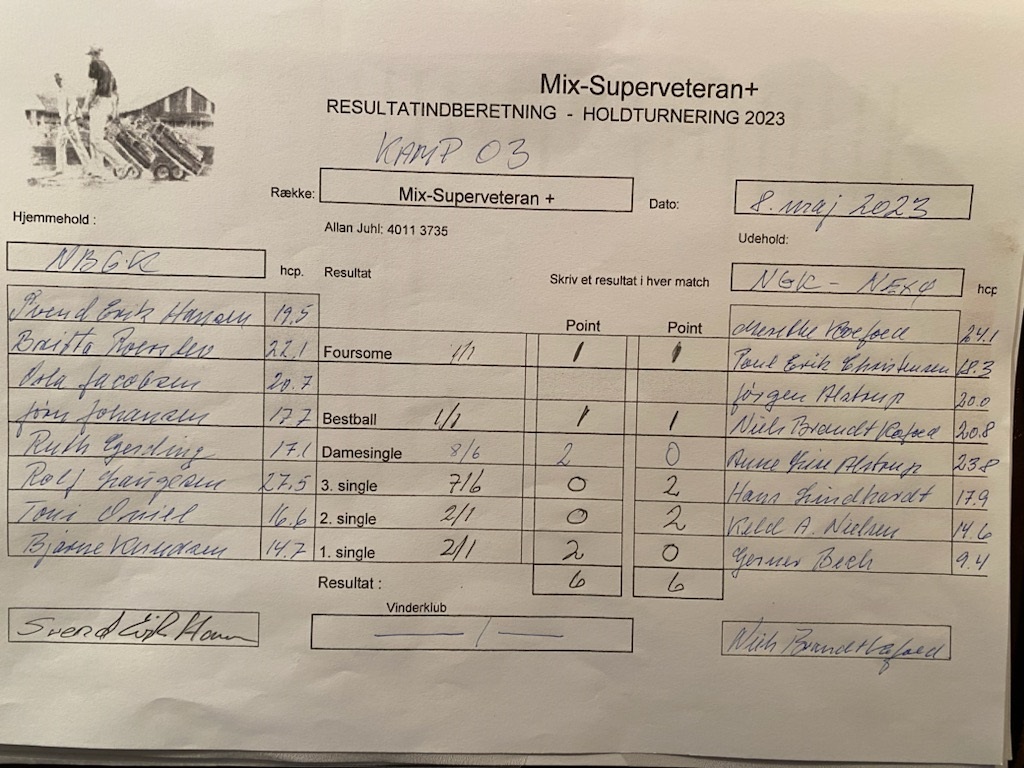 Mix-Superveteran+
RESULTATINDBERETNING - HOLDTURNERING 2023
KAMP 03
Række: Mix-Superveteran + Dato: 8. maj 2023
Hjemmehold : Allan Juhl: 4011 3735 Udehold:
NBGK hcp. Resultat Skriv et resultat i hver match NGK - NEXØ hcp
Svend Erik Hansen 19.5 Point Point 24.1
22.1 Foursome 1/1 1 1 Poul Erik Christensen 18.3
Jacobsen 20.7 Jørgen Alstrup 20.0
Jørn Johansen 17.7 Bestball 1/1 1 1 Niels Brandt Kofoed 20.8
Ruth 17.1 Damesingle 8/6 2 0 Anne Alstrup 23.8
Rolf 27.5 3. single 7/6 0 2 Hans Lindhardt 17.9
Toni 16.6 2. single 2/1 0 2 Keld A. Nielsen 14.6
Bjarne Knudsen 14.7 1. single 2/1 2 0 Gerner Bech 9.4
Resultat : 6 6
Vinderklub
Svend Erik Hansen — / — Niels Brandt Kofoed